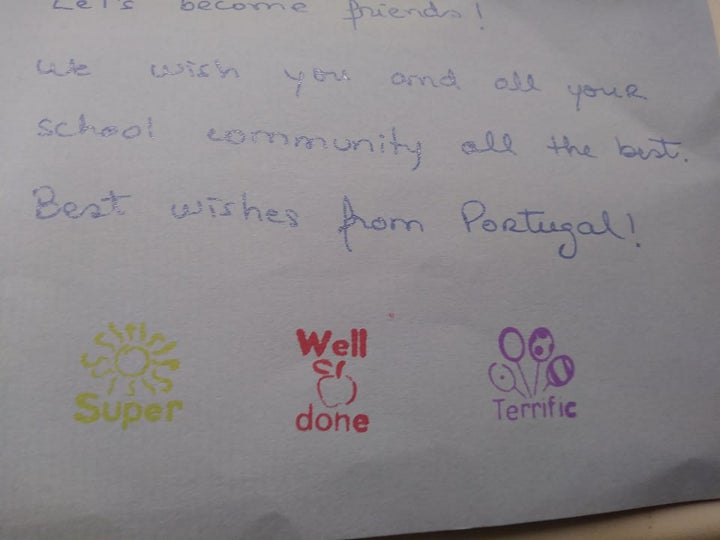 Let's become friends!
we wish you and all your
school community all the best.
Best wishes from Portugal!
Super
Well
done
Terrific